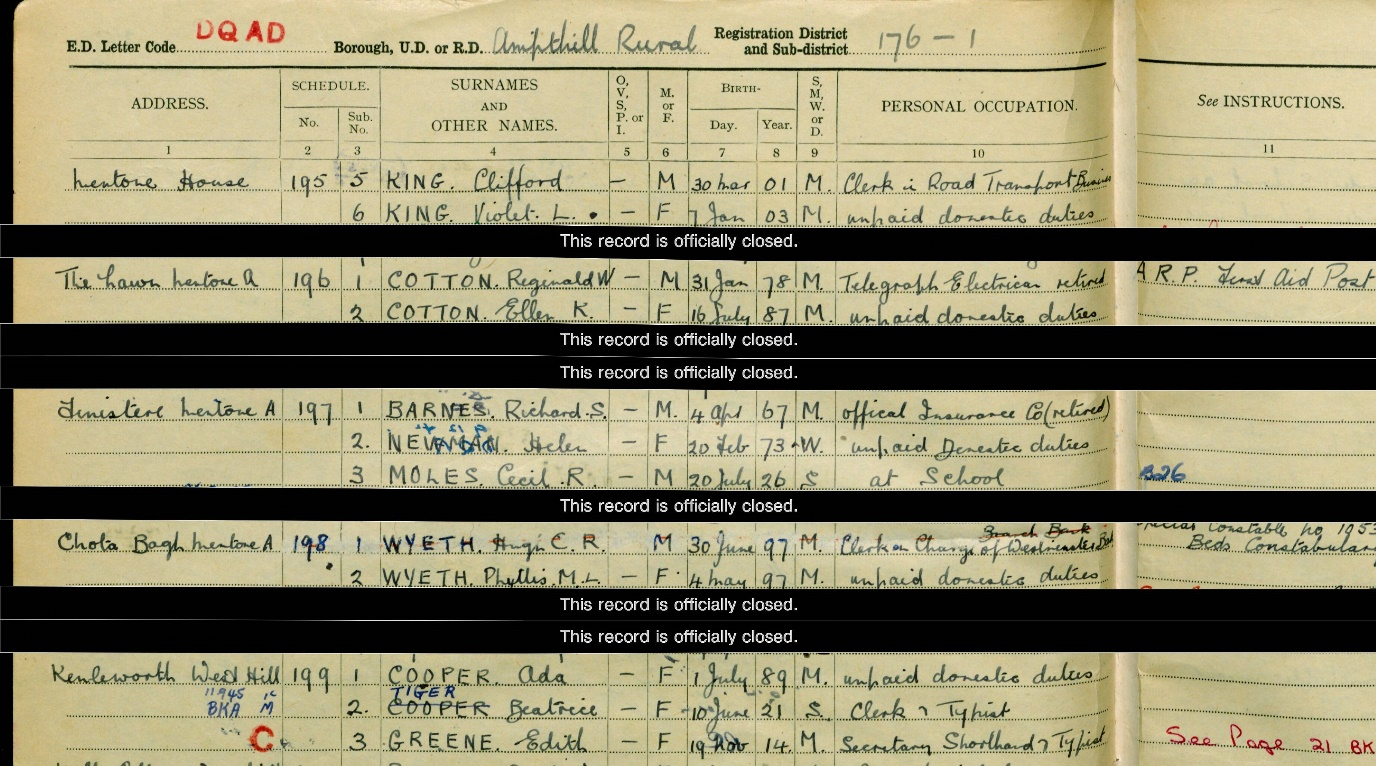 DQAD
E.D. Letter Code Borough, U.D. or R.D. Ampthill Rural Registration District and Sub-district 176 – 1
ADDRESS. SCHEDULE. No. Sub. No. SURNAMES AND OTHER NAMES. O, V, S, P. or I. M. or F. BIRTH- Day. Year. S, M, W, or D. PERSONAL OCCUPATION. See INSTRUCTIONS.
1 2 3 4 5 6 7 8 9 10 11
Mentone House 195 5 KING. Clifford – M 30 Mar 01 M. Clerk in Road Transport Business
6 KING. Violet. L. – F 7 Jan 03 M. unpaid domestic duties
This record is officially closed.
The Lawn Mentone A 196 1 COTTON. Reginald W – M 31 Jan 78 M. Telegraph Electrician retired A.R.P. First Aid Post
2 COTTON. Ellen K. – F 16 July 87 M. unpaid domestic duties
This record is officially closed.
This record is officially closed.
Finistere Mentone A 197 1 BARNES. Richard S. – M. 4 Apr 67 M. offical Insurance Co (retired)
2. NEWMAN. Helen – F 20 Feb 73 W. unpaid Domestic duties
3 MOLES. Cecil. R. – M 20 July 26 S at School B26
This record is officially closed.
Branch Bank Special Constable No 1953
Chota Bagh Mentone A 198 1 WYETH. Hugh C. R. M 30 June 97 M. Clerk in Charge of Westminster Bank Beds Constabulary
2 WYETH. Phyllis. M. L. – F 4 May 97 M. unpaid domestic duties
This record is officially closed.
This record is officially closed.
Kenleworth West Hill 199 1 COOPER. Ada – F 1 July 89 M. unpaid domestic duties
11945 TIGER
BKA M 2. COOPER Beatrice – F 10 June 21 S. Clerk & Typist
C 3 GREENE. Edith – F 19 Nov 14. M. Secretary Shorthand & Typist See Page 21 BK